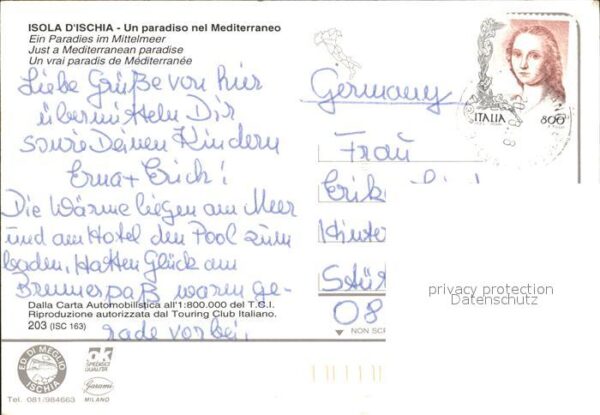 ISOLA D'ISCHIA - Un paradiso nel Mediterraneo
Ein Paradies im Mittelmeer
Just a Mediterranean paradise
Un vrai paradis de Méditerranée
Liebe Grüße von hier
übermitteln Dir
sowie Deinen Kindern
Erna + Erich!
Die Wärme liegen am Meer
und am Hotel den Pool zum
baden, Hatten Glück am
Brennerpaß waren ge-
rade vorbei.
Dalla Carta Automobilistica all'1:800.000 del T.C.I.
Riproduzione autorizzata dal Touring Club Italiano.
203 (ISC 163)
ED. DI MEGLIO
ISCHIA
Tel. 081/984663
ok
SPECIAL
QUALITÀ
Garami
MILANO
ITALIA
800
Germany
Frau
Erik
Hinter
08
privacy protection
Datenschutz
NON SCR